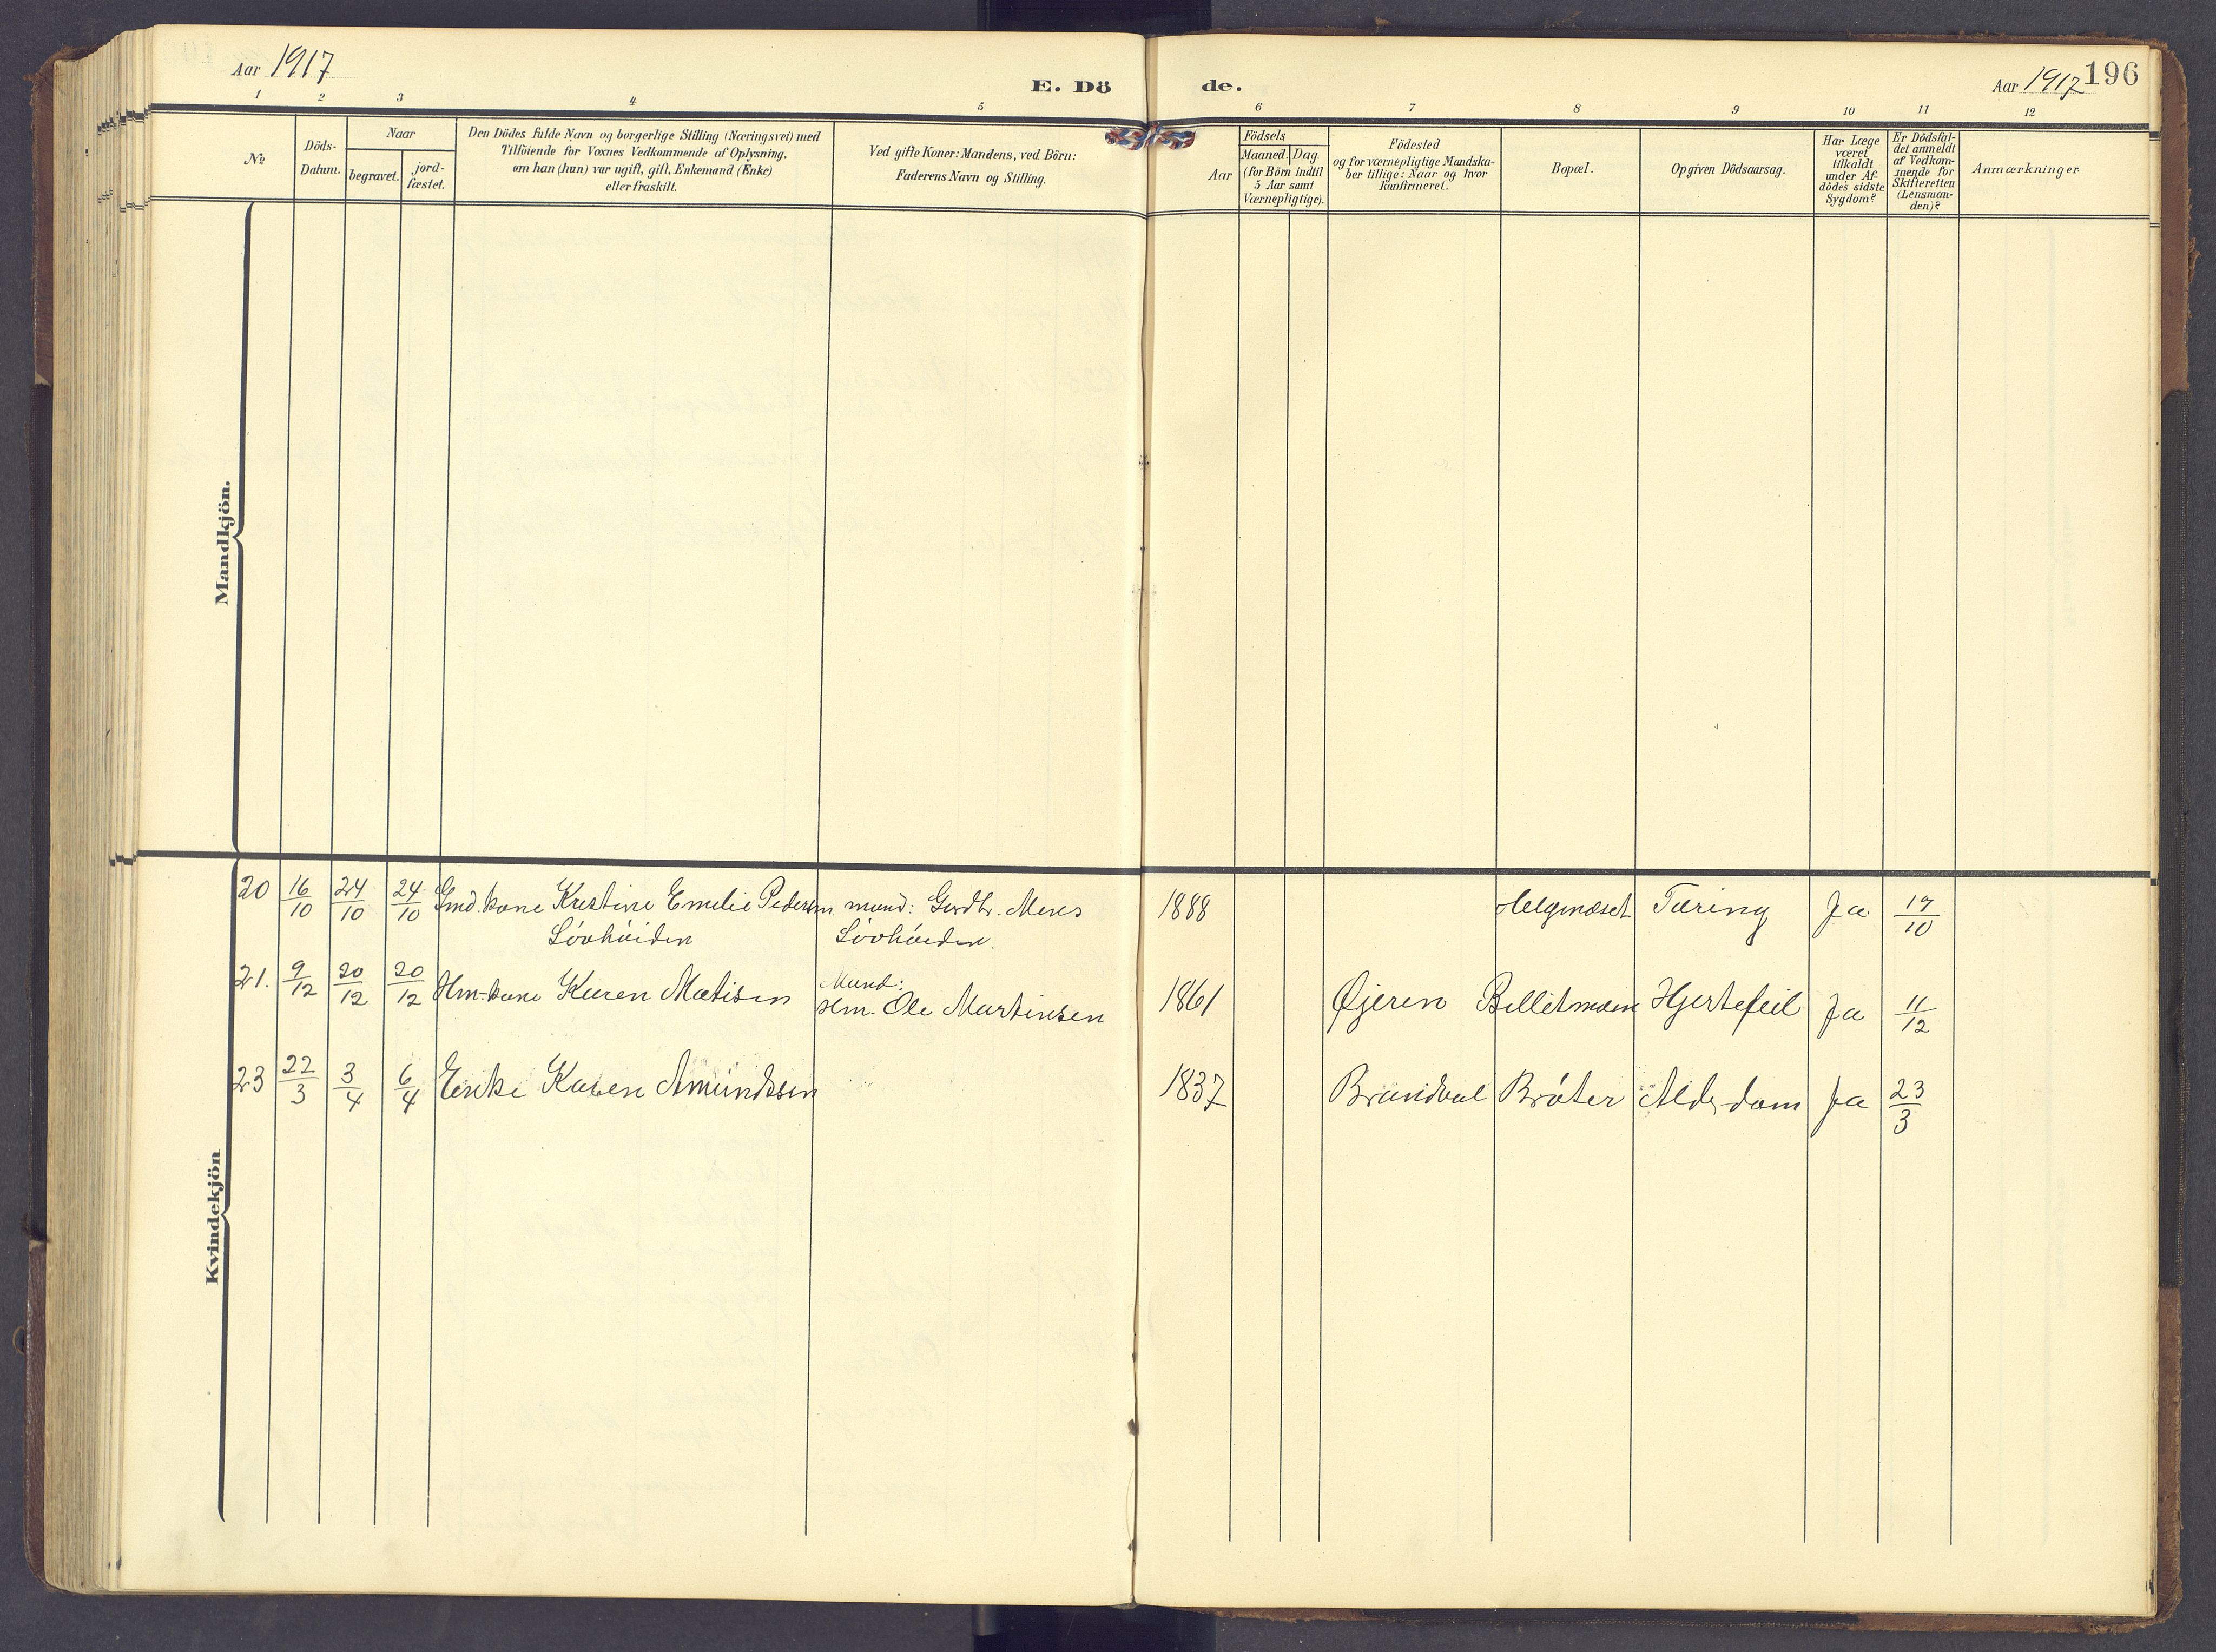 Aar 1917
E. Dö
de.
Aar 1917
196
1 2 3 4 5 6 7 8 9 10 11 12
№
Döds-
Datum.
Naar
begravet.
jord-
fæstet.
Den Dödes fulde Navn og borgerlige Stilling (Næringsvei) med
Tilföiende for Voxnes Vedkommende af Oplysning,
om han (hun) var ugift, gift, Enkemand (Enke)
eller fraskilt.
Ved gifte Koner: Mandens, ved Börn:
Faderens Navn og Stilling.
Födsels
Aar
Maaned.
Dag.
(for Börn indtil
5 Aar samt
Værnepligtige).
Födested
og for værnepligtige Mandska-
ber tillige: Naar og hvor
konfirmeret.
Bopæl.
Opgiven Dödsaarsag.
Har Læge
været
tilkaldt
under Af-
dödes sidste
Sygdom?
Er Dödsfal-
det anmeldt
af Vedkom-
mende for
Skifteretten
(Lensman-
den)?
Anmærkninger
Mandkjön.
Kvindekjön
20 16/10 24/10 24/10 Gmd. kone Kristine Emelie Pedersen mand: Gardbr. Mens 1888 Helgenæset Tæring Ja 17/10
Lövhöiden Lövhöiden.
21. 9/12 20/12 20/12 Hm-kone Karen Matisen Mand: Hm. Ole Martinsen 1861 Øjeren Billetmoen Hjertefeil Ja 11/12
23 22/3 3/4 6/4 Enke Karen Amundssen 1837 Brandval Bröter Alderdom Ja 23/3